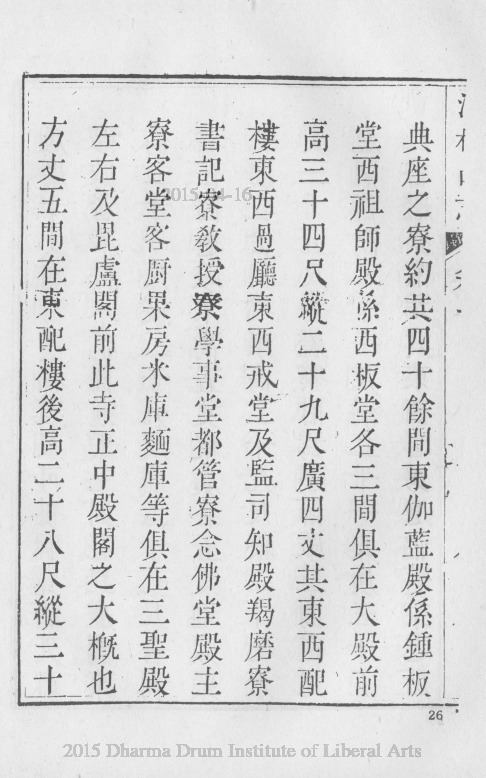 典座之寮約共四十餘間東伽藍殿係鍾板
堂西祖師殿係西板堂各三間俱在大殿前
高三十四尺縱二十九尺廣四丈其東西配
樓東西過廳東西戒堂及監司知殿羯磨寮
書記寮教授寮學事堂都管寮念佛堂殿主
寮客堂客廚果房米庫麵庫等俱在三聖殿
左右及毘盧閣前此寺正中殿閣之大概也
方丈五間在東配樓後高二十八尺縱三十
26
2015-04-16
2015 Dharma Drum Institute of Liberal Arts